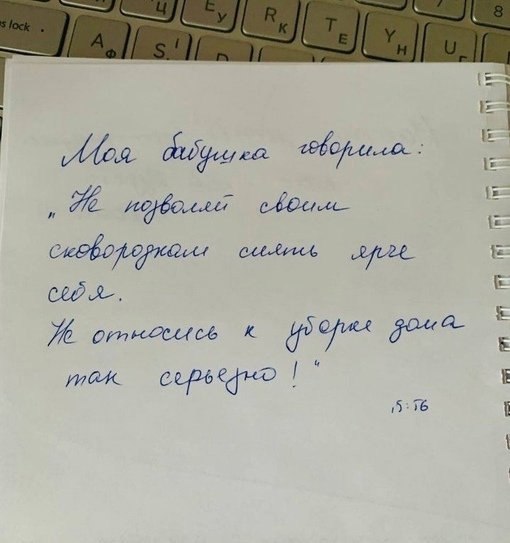 s lock
Ц
E
У
R
К
T
Е
Y
Н
U
8
A
Ф
S
Моя бабушка говорила:
„Не позволяй своим
сковородкам сиять ярче
себя.
Не относись к уборке дома
так серьезно!"